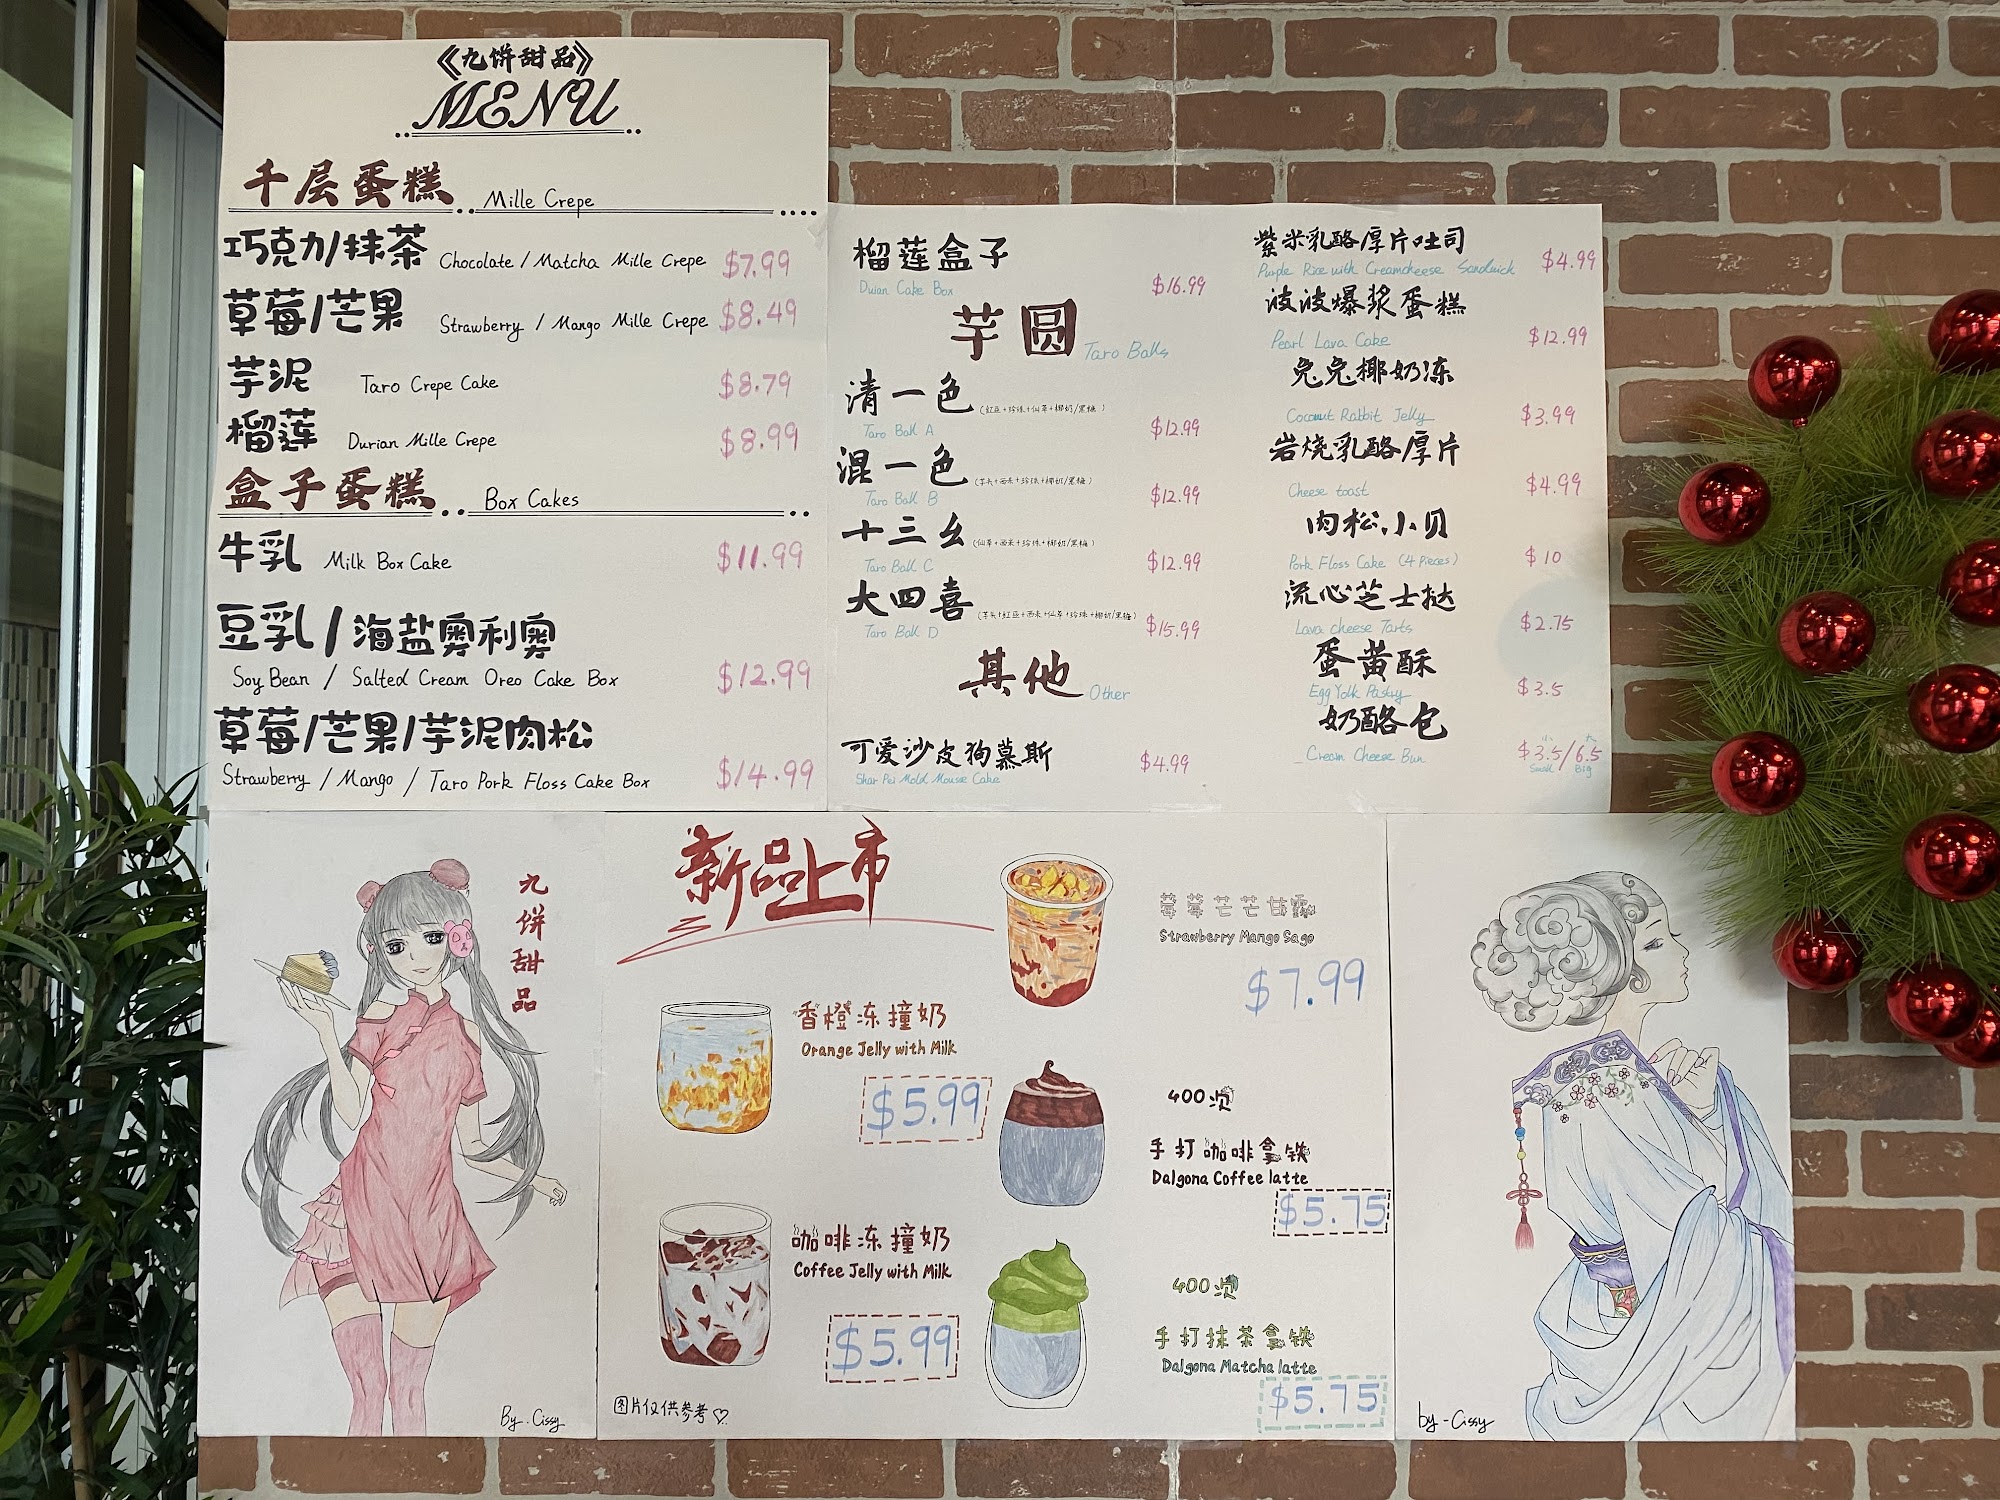 《九饼甜品》
MENU
千层蛋糕 Mille Crepe
巧克力/抹茶 Chocolate / Matcha Mille Crepe $7.99
草莓/芒果 Strawberry / Mango Mille Crepe $8.49
芋泥 Taro Crepe Cake $8.79
榴莲 Durian Mille Crepe $8.99
盒子蛋糕 Box Cakes
牛乳 Milk Box Cake $11.99
豆乳/海盐奥利奥
Soy Bean / Salted Cream Oreo Cake Box $12.99
草莓/芒果/芋泥肉松
Strawberry / Mango / Taro Pork Floss Cake Box $14.99
榴莲盒子
Duian Cake Box $16.99
芋圆 Taro Balls
清一色 (红豆+珍珠+仙草+椰奶/黑糖)
Taro Ball A $12.99
混一色 (芋头+西米+珍珠+椰奶/黑糖)
Taro Ball B $12.99
十三幺 (仙草+西米+珍珠+椰奶/黑糖)
Taro Ball C $12.99
大四喜 (芋头+红豆+西米+仙草+珍珠+椰奶/黑糖)
Taro Ball D $15.99
其他 Other
可爱沙皮狗慕斯
Shar Pei Mold Mousse Cake $4.99
紫米乳酪厚片吐司
Purple Rice with Creamcheese Sandwick $4.99
波波爆浆蛋糕
Pearl Lava Cake $12.99
兔兔椰奶冻
Coconut Rabbit Jelly $3.99
岩烧乳酪厚片
Cheese toast $4.99
肉松小贝
Pork Floss Cake (4 Pieces) $10
流心芝士挞
Lava cheese Tarts $2.75
蛋黄酥
Egg Yolk Pastry $3.5
奶酪包
Cream Cheese Bun $3.5/6.5
小 大
Small Big
九饼甜品
By . Cissy
新品上市
香橙冻撞奶
Orange Jelly with Milk
$5.99
咖啡冻撞奶
Coffee Jelly with Milk
$5.99
图片仅供参考♡
莓莓芒芒甘露
Strawberry Mango Sago
$7.99
400次
手打咖啡拿铁
Dalgona Coffee latte
$5.75
400次
手打抹茶拿铁
Dalgona Matcha latte
$5.75
by - Cissy